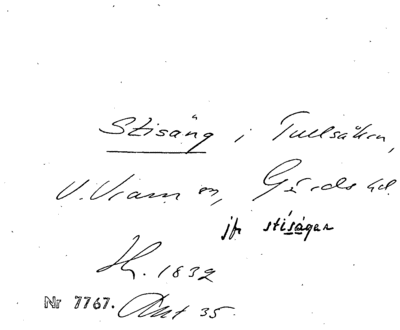 Stisäng i Tullsåkra,
V. Vram sn, Gärds hd.
jfr stisågen
Hr. 1832
Nr 7767. Ant 35.